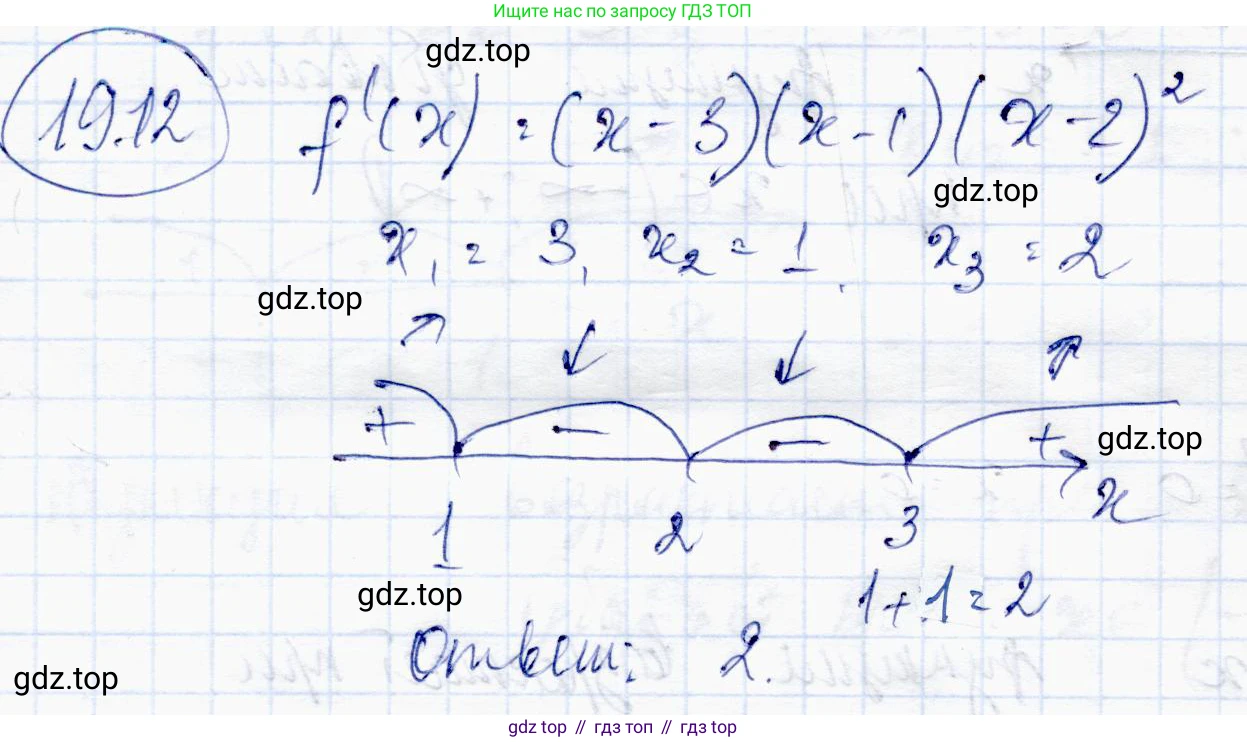 Ищите нас по запросу ГДЗ ТОП
gdz.top
19.12 f'(x) = (x - 3)(x - 1)(x - 2)²
gdz.top
x₁ = 3, x₂ = 1, x₃ = 2
gdz.top
↗ ↙ ↙ ↗
+ − − +
gdz.top
x
1 2 3
gdz.top
1 + 1 = 2
Ответ: 2.
gdz.top
gdz top // гдз топ // gdz top